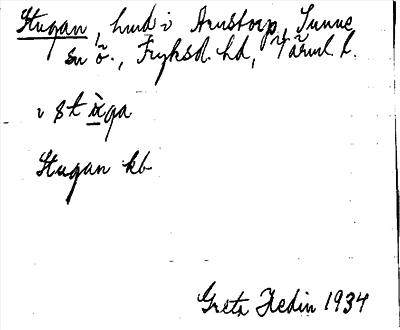 Stugan, hmd i Arnstorp, Sunne
sn ö., Fryksd. hd, Värml. l.
i st ὰga
Stugan kb
Greta Hedin 1934